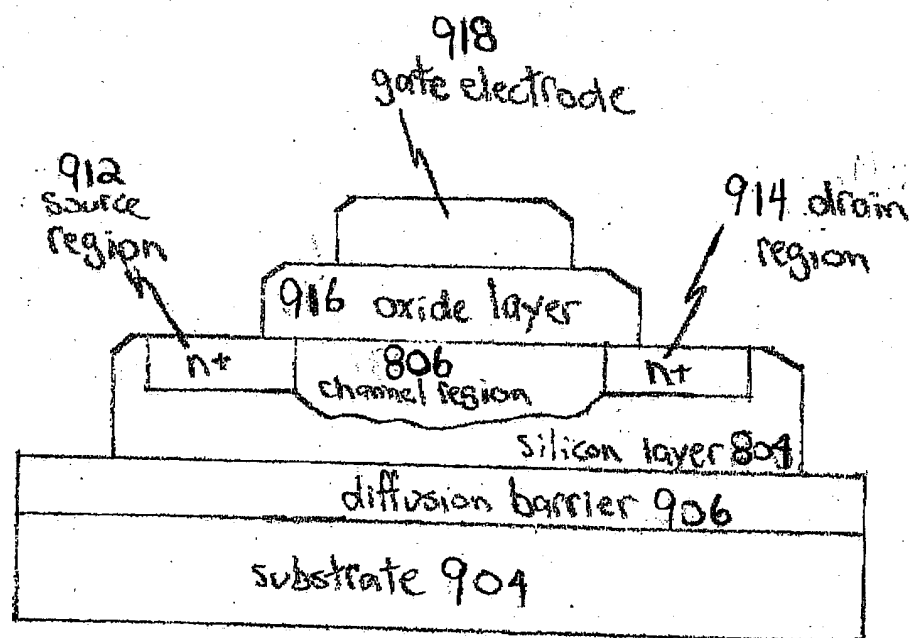 918
gate electrode
912
source
region
914 drain
region
916 oxide layer
n+
806
channel region
n+
silicon layer 804
diffusion barrier 906
substrate 904